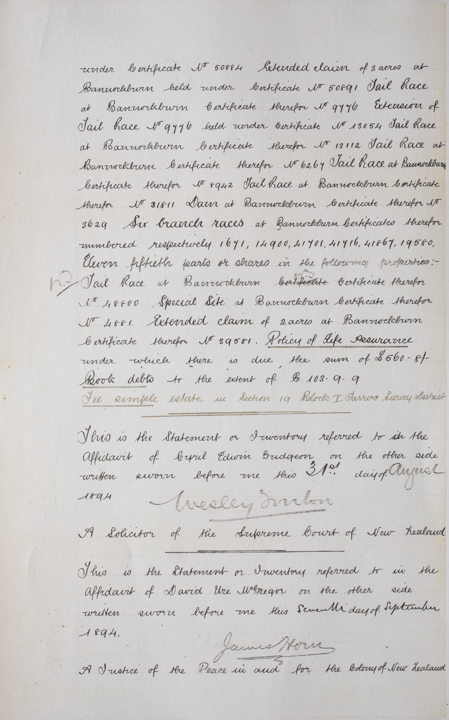 under Certificate No 50884 Extended claim of 3 acres at
Bannockburn held under Certificate No 50891 Tail Race
at Bannockburn Certificate therefor No 9776 Extension of
Tail Race No 9776 held under Certificate No 13054 Tail Race
at Bannockburn Certificate therefor No 12112 Tail Race at
Bannockburn Certificate therefor No 6267 Tail Race at Bannockburn
Certificate therefor No 8942 Tail Race at Bannockburn Certificate
therefor No 31811 Dam at Bannockburn Certificate therefor No
3629 Six branch races at Bannockburn Certificates therefor
numbered respectively 1671, 14900, 41701, 41716, 41867, 19580.
Eleven fiftieth parts or shares in the following properties:-
Tail Race at Bannockburn Certificate Certificate therefor
No 48880 Special Site at Bannockburn Certificate therefor
No 4881. Extended claim of 2 acres at Bannockburn
Certificate therefor No 39581. Policy of Life Assurance
under which there is due the sum of £560-8/-
Book debts to the extent of £ 103. 9. 9
Fee simple estate in Section 19 Block I Tarras Survey District
This is the Statement or Inventory referred to in the
Affidavit of Cyril Edwin Gudgeon on the other side
written sworn before me this 31st day of August
1894
A Solicitor of the Supreme Court of New Zealand
This is the Statement or Inventory referred to in the
Affidavit of David Ure McGregor on the other side
written sworn before me this Seventh day of September
1894.
James Horn
A Justice of the Peace in and for the Colony of New Zealand